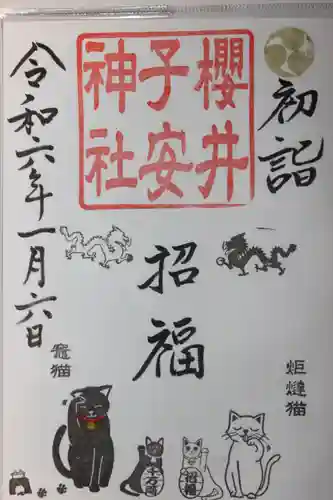 初詣
櫻井
子安
神社
招福
令和六年一月六日
竈猫
炬燵猫